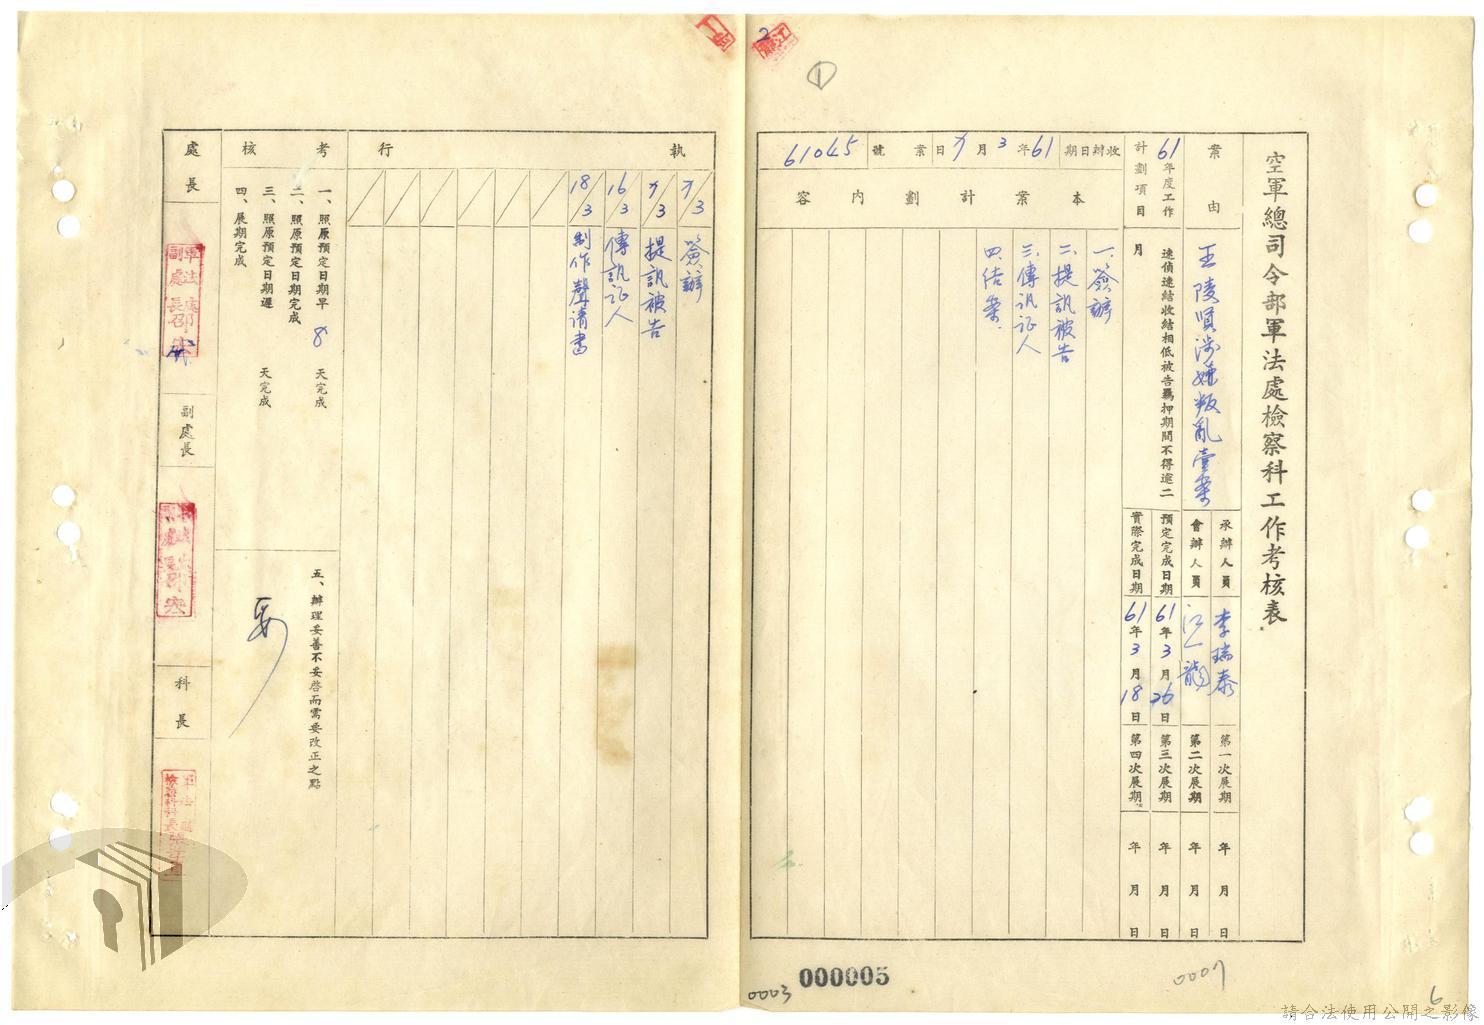 空軍總司令部軍法處檢察科工作考核表
案由
王陵賢涉嫌叛亂壹案
承辦人員
李瑞泰
會辦人員
江一龍
第一次展期 年 月 日
第二次展期 年 月 日
61年度工作計劃項目
速偵速結收結相抵被告羈押期間不得逾二月
預定完成日期
61年3月26日
實際完成日期
61年3月18日
第三次展期 年 月 日
第四次展期 年 月 日
收辦日期 61年3月7日
案號 61045
本案計劃內容
一、簽辦
二、提訊被告
三、傳訊証人
四、結案.
執行
7/3 簽辦
7/3 提訊被告
16/3 傳訊証人
18/3 制作聲請書
考核
一、照原預定日期早 8 天完成
二、照原預定日期完成
三、照原預定日期遲 天完成
四、展期完成
五、辦理妥善不妥善而需要改正之點
妥
處長
軍法處副處長邵
副處長
科長
2
1
000005
0003
0007
6
請合法使用公開之影像